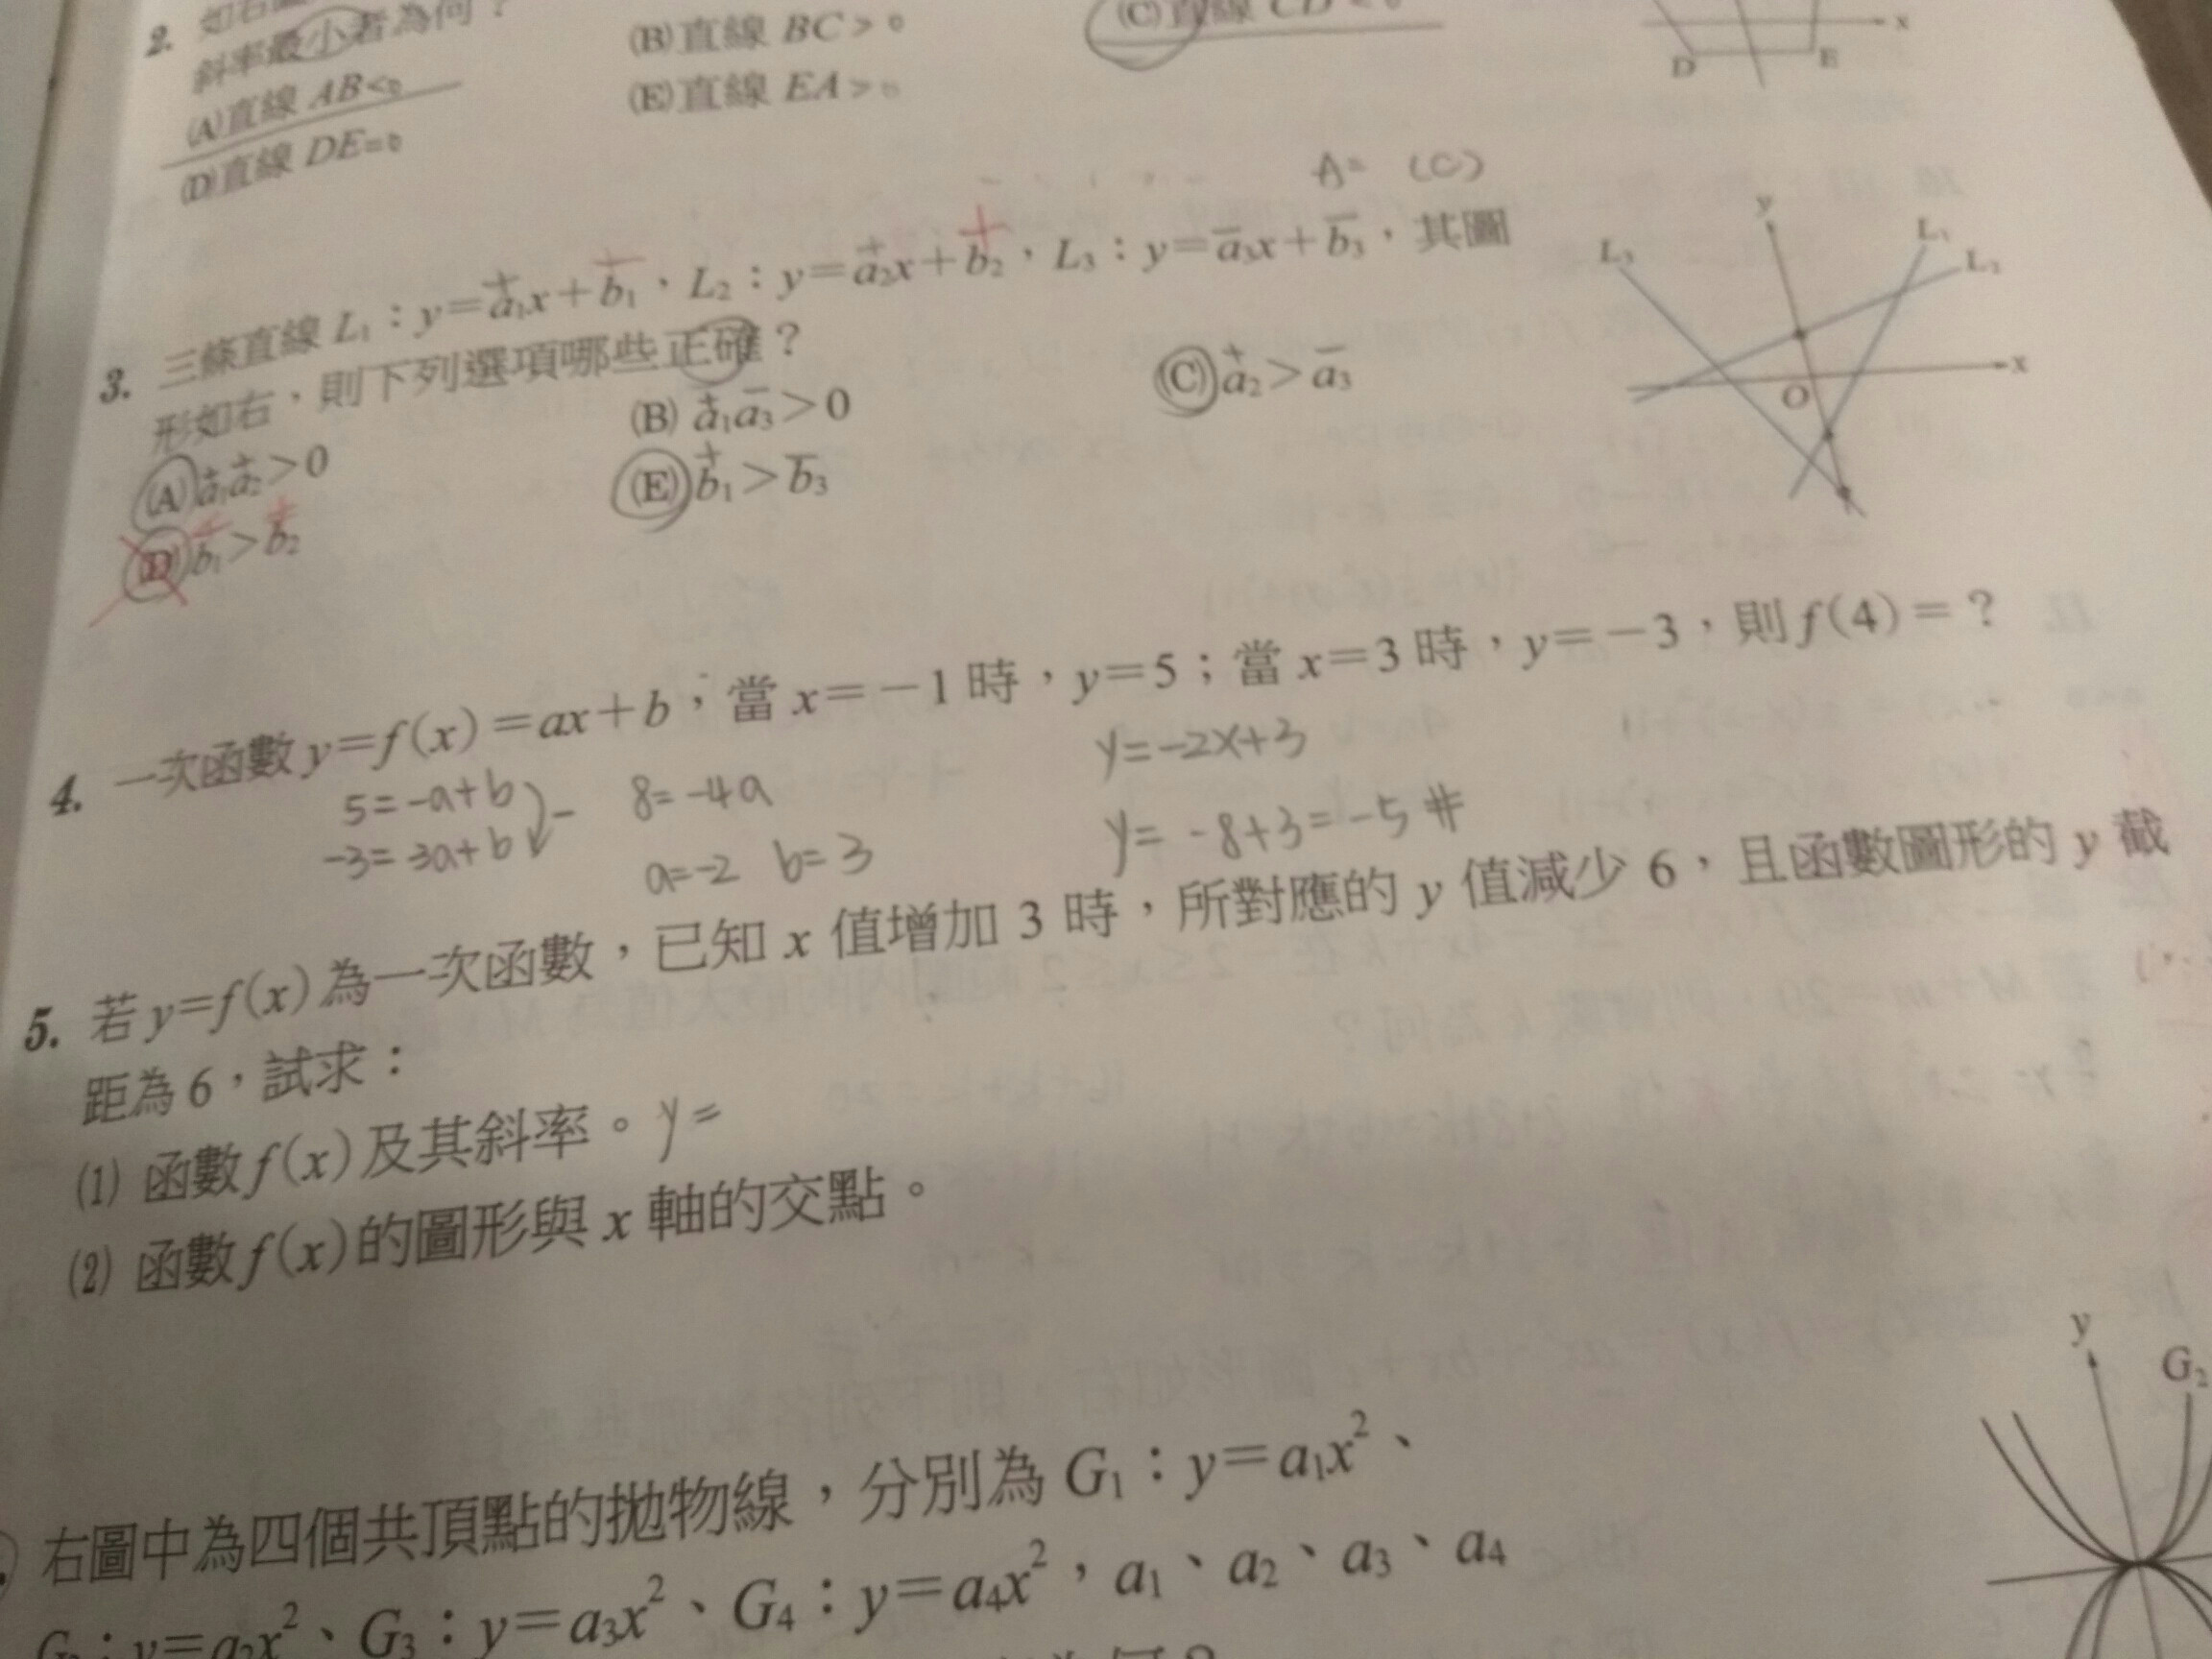 2.
斜率最小者為何？
(A)直線 AB<0
(B)直線 BC>0
(C)直線 CD<0
(D)直線 DE=0
(E)直線 EA>0
D E x
A= (C)
3. 三條直線 L₁：y=a₁x+b₁，L₂：y=a₂x+b₂，L₃：y=a₃x+b₃，其圖
形如右，則下列選項哪些正確？
(A) a₁a₂>0
(B) a₁a₃>0
(C) a₂>a₃
(D) b₁>b₂
(E) b₁>b₃
y L₃ L₁ L₂ x O
4. 一次函數 y=f(x)=ax+b，當 x=-1 時，y=5；當 x=3 時，y=-3，則 f(4)=？
5=-a+b
-3=3a+b
-
8=-4a
a=-2 b=3
y=-2x+3
y=-8+3=-5 #
5. 若 y=f(x) 為一次函數，已知 x 值增加 3 時，所對應的 y 值減少 6，且函數圖形的 y 截
距為 6，試求：
(1) 函數 f(x) 及其斜率。 y=
(2) 函數 f(x) 的圖形與 x 軸的交點。
右圖中為四個共頂點的拋物線，分別為 G₁：y=a₁x²、
G₂：y=a₂x²、G₃：y=a₃x²、G₄：y=a₄x²，a₁、a₂、a₃、a₄
y G₂